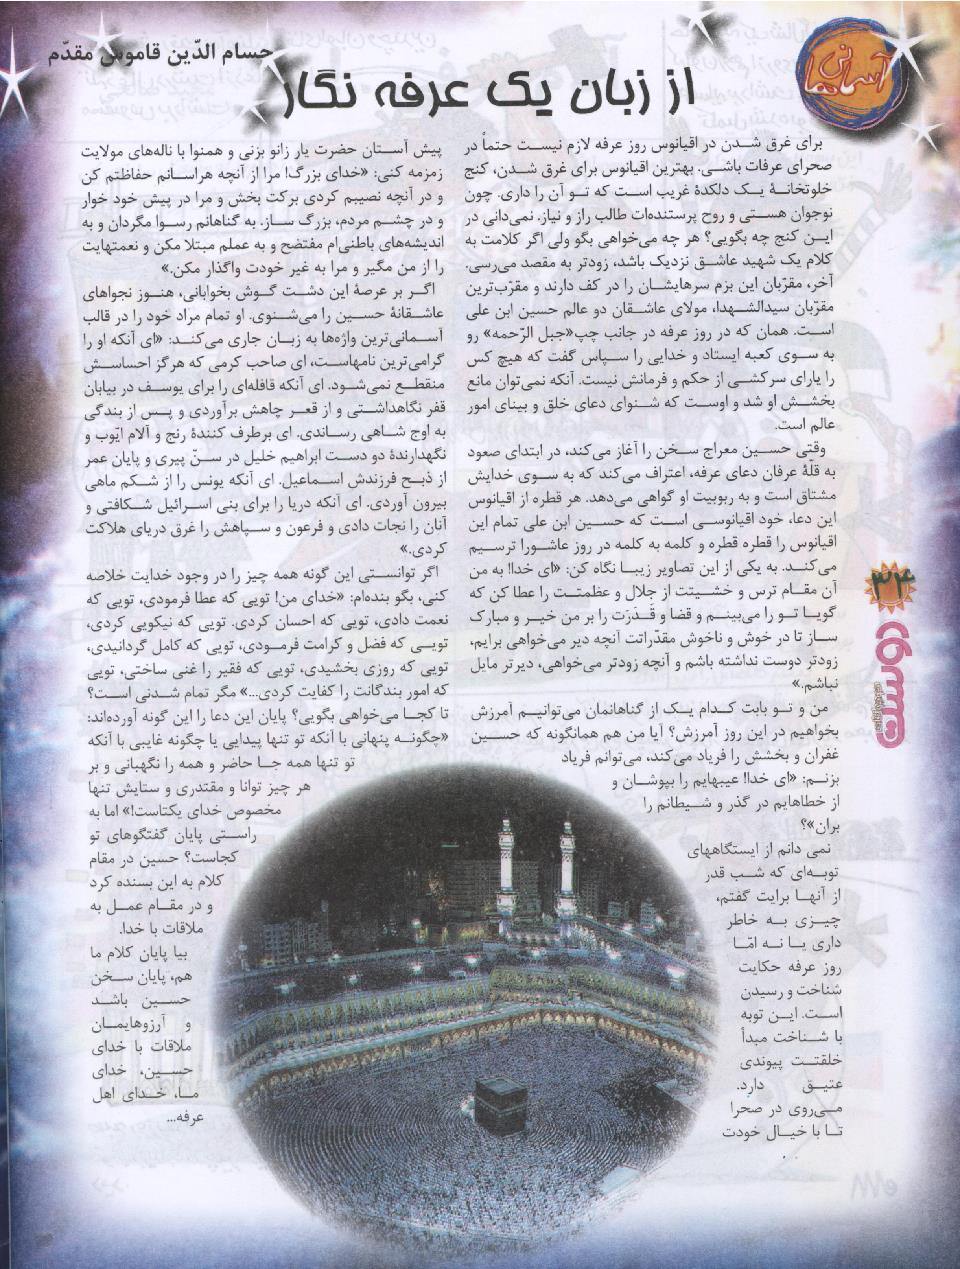 آسمانیها
حسام الدّین قاموس مقدّم
از زبان یک عرفه نگار
برای غرق شدن در اقیانوس روز عرفه لازم نیست حتماً در
صحرای عرفات باشی. بهترین اقیانوس برای غرق شدن، کنج
خلوتخانهٔ یک دلکدهٔ غریب است که تو آن را داری. چون
نوجوان هستی و روح پرستنده‌ات طالب راز و نیاز. نمی‌دانی در
این کنج چه بگویی؟ هر چه می‌خواهی بگو ولی اگر کلامت به
کلام یک شهید عاشق نزدیک باشد، زودتر به مقصد می‌رسی.
آخر، مقرّبان این بزم سرهایشان را در کف دارند و مقرّب‌ترین
مقرّبان سیدالشهدا، مولای عاشقان دو عالم حسین ابن علی
است. همان که در روز عرفه در جانب چپ «جبل الرّحمه» رو
به سوی کعبه ایستاد و خدایی را سپاس گفت که هیچ کس
را یارای سرکشی از حکم و فرمانش نیست. آنکه نمی‌توان مانع
بخشش او شد و اوست که شنوای دعای خلق و بینای امور
عالم است.
وقتی حسین معراج سخن را آغاز می‌کند، در ابتدای صعود
به قلّهٔ عرفان دعای عرفه، اعتراف می‌کند که به سوی خدایش
مشتاق است و به ربوبیت او گواهی می‌دهد. هر قطره از اقیانوس
این دعا، خود اقیانوسی است که حسین ابن علی تمام این
اقیانوس را قطره قطره و کلمه به کلمه در روز عاشورا ترسیم
می‌کند. به یکی از این تصاویر زیبا نگاه کن: «ای خدا! به من
آن مقام ترس و خشیتت از جلال و عظمتت را عطا کن که
گویا تو را می‌بینم و قضا و قَدَرَت را بر من خیر و مبارک
ساز تا در خوش و ناخوش مقدّراتت آنچه دیر می‌خواهی برایم،
زودتر دوست نداشته باشم و آنچه زودتر می‌خواهی، دیرتر مایل
نباشم.»
من و تو بابت کدام یک از گناهانمان می‌توانیم آمرزش
بخواهیم در این روز آمرزش؟ آیا من هم همانگونه که حسین
غفران و بخشش را فریاد می‌کند، می‌توانم فریاد
بزنم: «ای خدا! عیبهایم را بپوشان و
از خطاهایم در گذر و شیطانم را
بران»؟
نمی دانم از ایستگاههای
توبه‌ای که شب قدر
از آنها برایت گفتم،
چیزی به خاطر
داری یا نه امّا
روز عرفه حکایت
شناخت و رسیدن
است. این توبه
با شناخت مبدأ
خلقتت پیوندی
عتیق دارد.
می‌روی در صحرا
تا با خیال خودت
پیش آستان حضرت یار زانو بزنی و همنوا با ناله‌های مولایت
زمزمه کنی: «خدای بزرگ! مرا از آنچه هراسانم حفاظتم کن
و در آنچه نصیبم کردی برکت بخش و مرا در پیش خود خوار
و در چشم مردم، بزرگ ساز. به گناهانم رسوا مگردان و به
اندیشه‌های باطنی‌ام مفتضح و به عملم مبتلا مکن و نعمتهایت
را از من مگیر و مرا به غیر خودت واگذار مکن.»
اگر بر عرصهٔ این دشت گوش بخوابانی، هنوز نجواهای
عاشقانهٔ حسین را می‌شنوی. او تمام مراد خود را در قالب
آسمانی‌ترین واژه‌ها به زبان جاری می‌کند: «ای آنکه او را
گرامی‌ترین نامهاست، ای صاحب کرمی که هرگز احساسش
منقطع نمی‌شود. ای آنکه قافله‌ای را برای یوسف در بیابان
قفر نگاهداشتی و از قعر چاهش برآوردی و پس از بندگی
به اوج شاهی رساندی. ای برطرف کنندهٔ رنج و آلام ایّوب و
نگهدارندهٔ دو دست ابراهیم خلیل در سنّ پیری و پایان عمر
از ذبح فرزندش اسماعیل. ای آنکه یونس را از شکم ماهی
بیرون آوردی. ای آنکه دریا را برای بنی اسرائیل شکافتی و
آنان را نجات دادی و فرعون و سپاهش را غرق دریای هلاکت
کردی.»
اگر توانستی این گونه همه چیز را در وجود خدایت خلاصه
کنی، بگو بنده‌ام: «خدای من! تویی که عطا فرمودی، تویی که
نعمت دادی، تویی که احسان کردی. تویی که نیکویی کردی،
تویی که فضل و کرامت فرمودی، تویی که کامل گردانیدی،
تویی که روزی بخشیدی، تویی که فقیر را غنی ساختی، تویی
که امور بندگانت را کفایت کردی...» مگر تمام شدنی است؟
تا کجا می‌خواهی بگویی؟ پایان این دعا را این گونه آورده‌اند:
«چگونه پنهانی با آنکه تو تنها پیدایی یا چگونه غایبی با آنکه
تو تنها همه جا حاضر و همه را نگهبانی و بر
هر چیز توانا و مقتدری و ستایش تنها
مخصوص خدای یکتاست!» اما به
راستی پایان گفتگوهای تو
کجاست؟ حسین در مقام
کلام به این بسنده کرد
و در مقام عمل به
ملاقات با خدا.
بیا پایان کلام ما
هم، پایان سخن
حسین باشد
و آرزوهایمان
ملاقات با خدای
حسین، خدای
ما، خدای اهل
عرفه...
۳۴
دوست